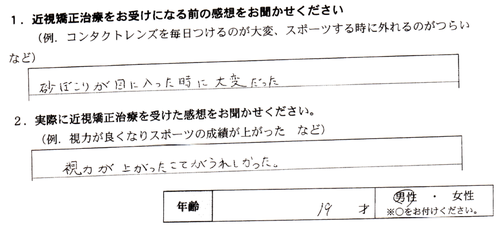 1．近視矯正治療をお受けになる前の感想をお聞かせください
（例．コンタクトレンズを毎日つけるのが大変、スポーツする時に外れるのがつらい
など）
砂ぼこりが目に入った時に大変だった
2．実際に近視矯正治療を受けた感想をお聞かせください。
（例．視力が良くなりスポーツの成績が上がった　など）
視力が上がったことがうれしかった。
年齢　19　才　男性　・　女性
※○をお付けください。